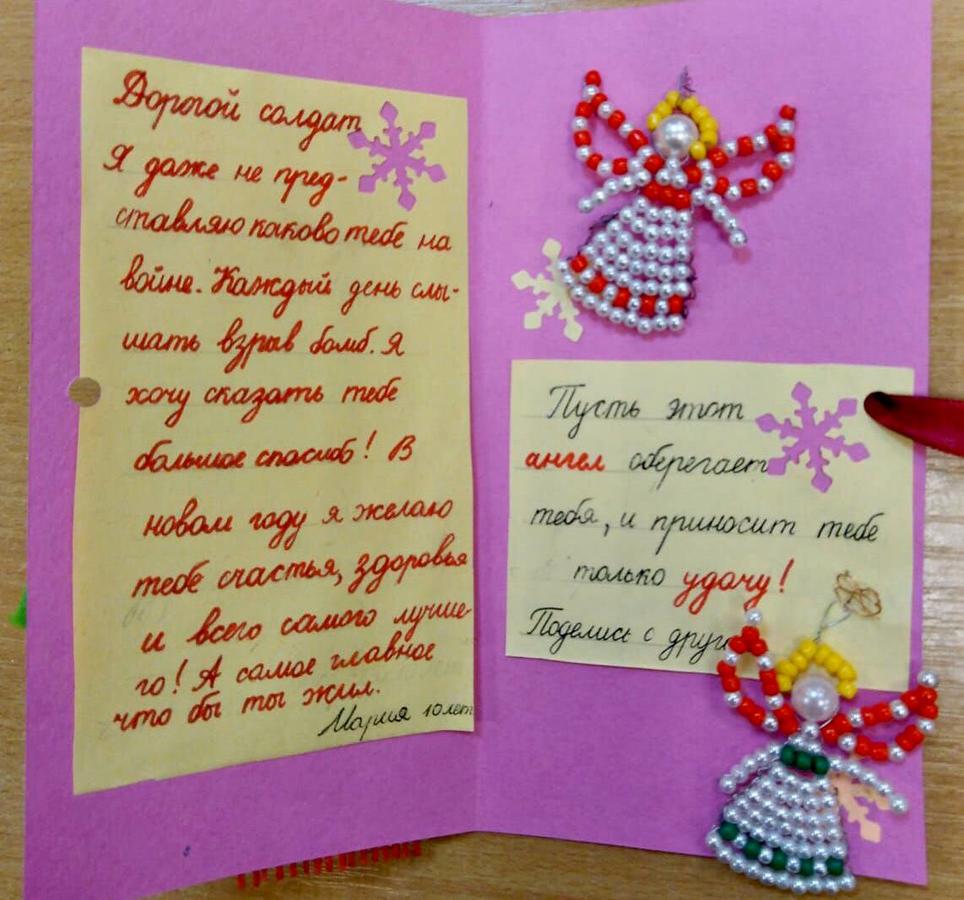 Дорогой солдат
Я даже не пред-
ставляю каково тебе на
войне. Каждый день слы-
шать взрыв бомб. Я
хочу сказать тебе
большое спасибо! В
новом году я желаю
тебе счастья, здоровья
и всего самого лучше-
го! А самое главное
что бы ты жил.
Мария 10 лет
Пусть этот
ангел оберегает
тебя, и приносит тебе
только удачу!
Поделись с